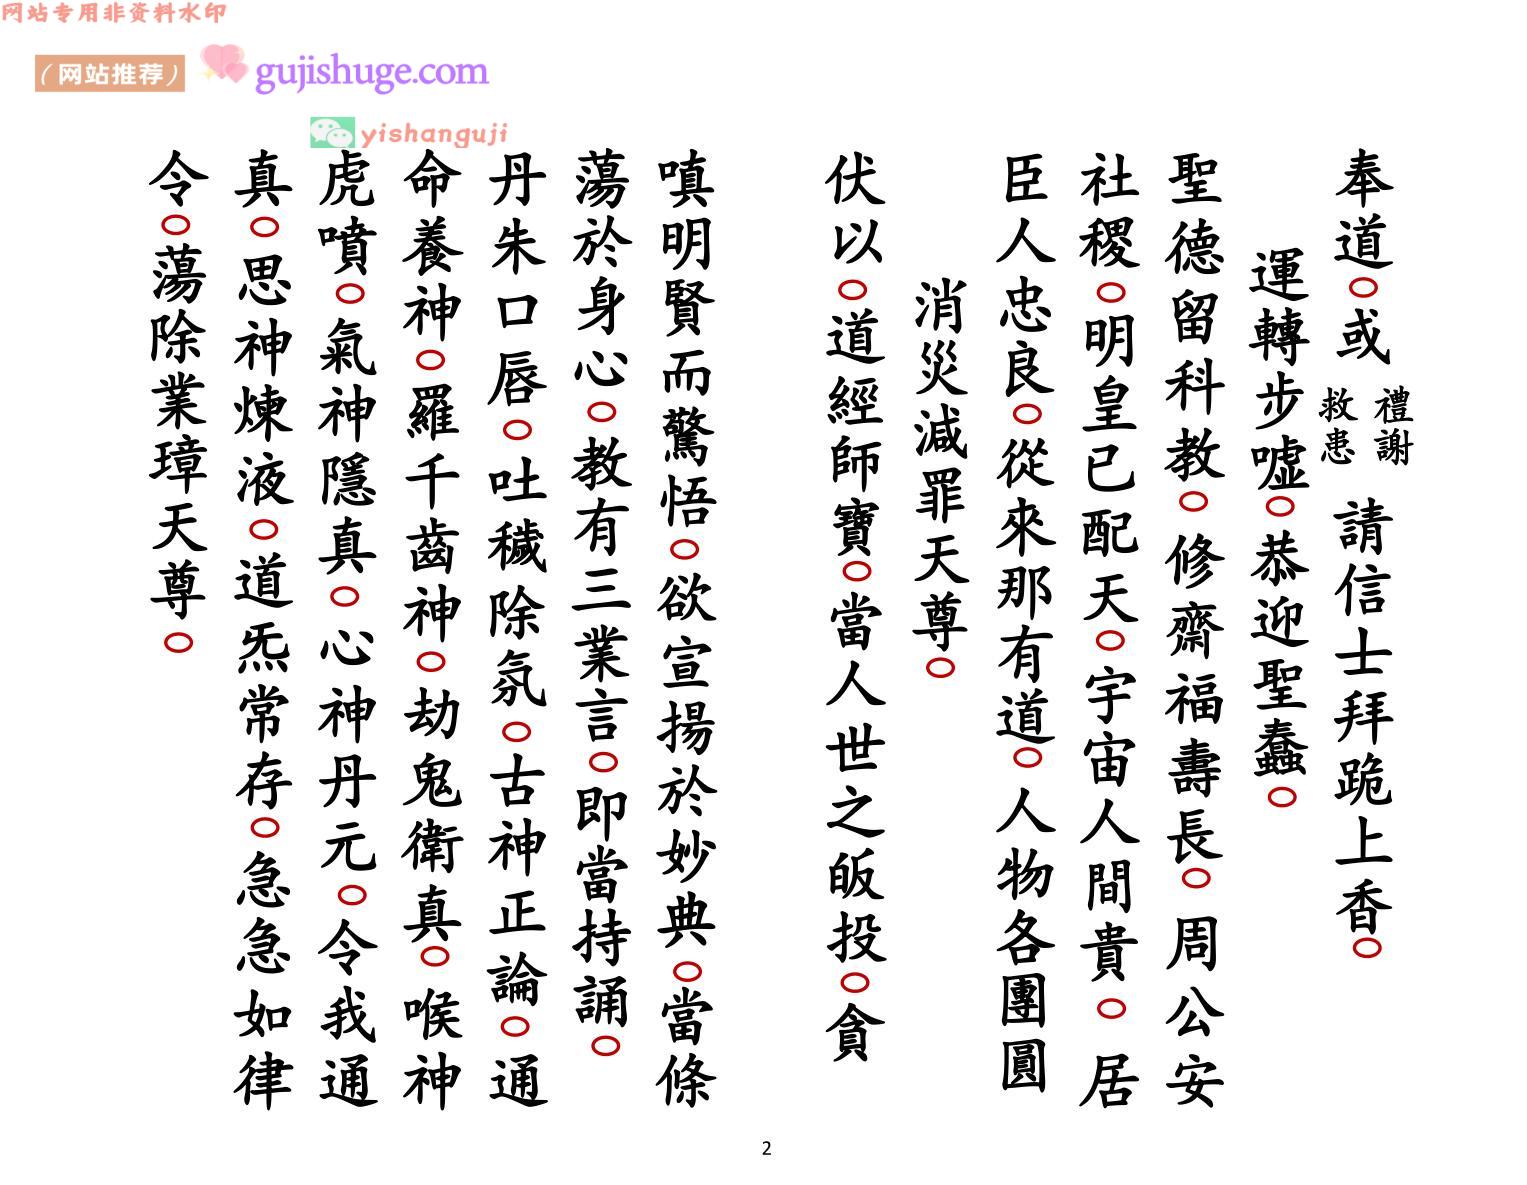 网站专用非资料水印
（网站推荐）
gujishuge.com
yishanguji
奉道○或禮謝救患請信士拜跪上香○
運轉步噓○恭迎聖蠢○
聖德留科教○修齋福壽長○周公安
社稷○明皇已配天○宇宙人間貴○居
臣人忠良○從來那有道○人物各團圓
消災減罪天尊○
伏以○道經師寶○當人世之皈投○貪
嗔明賢而驚悟○欲宣揚於妙典○當條
蕩於身心○教有三業言○即當持誦○
丹朱口唇○吐穢除氛○古神正論○通
命養神○羅千齒神○劫鬼衛真○喉神
虎噴○氣神隱真○心神丹元○令我通
真○思神煉液○道炁常存○急急如律
令○蕩除業璋天尊○
2